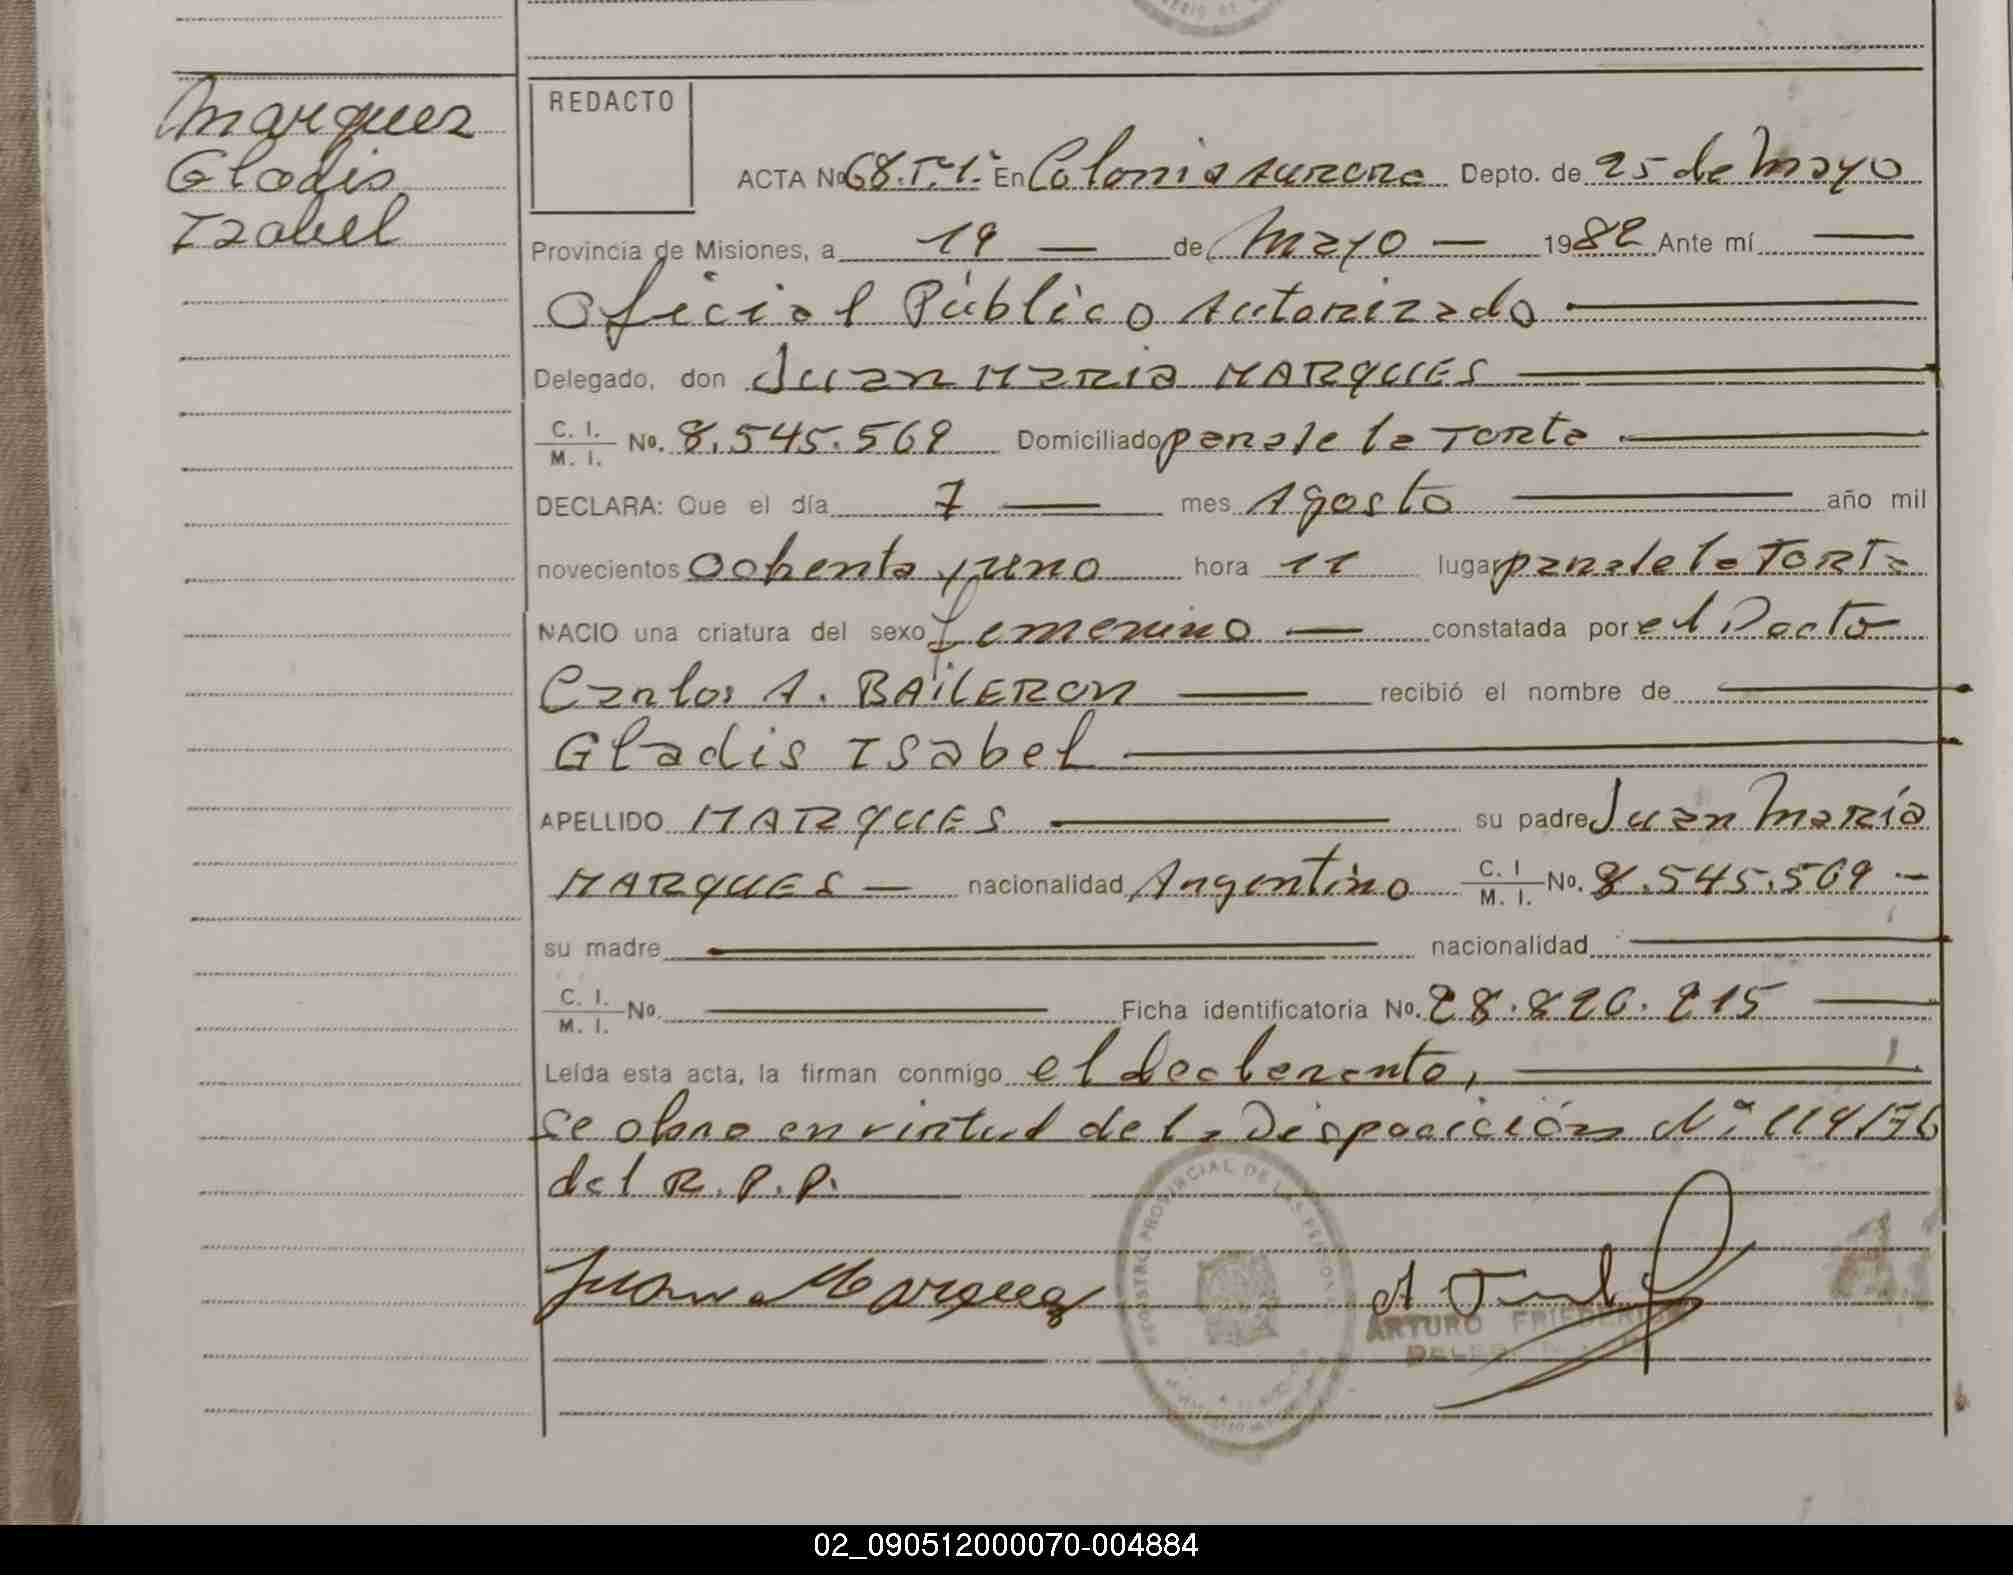 Marquez
Gladis
Izabel
REDACTO
ACTA No 68.Tº1º En Colonia Aurora Depto. de 25 de Mayo
Provincia de Misiones, a 19 de Mayo 1982 Ante mí
Oficial Público Autorizado
Delegado, don Juan Maria MARQUES
C. I. / M. I. No. 8.545.569 Domiciliado panale la Torta
DECLARA: Que el día 7 mes Agosto año mil
novecientos Ochenta y uno hora 11 lugar panale la Torta
NACIO una criatura del sexo femenino constatada por el Docto
Carlos A. BAILERON recibió el nombre de
Gladis Isabel
APELLIDO MARQUES su padre Juan María
MARQUES nacionalidad Argentino C. I / M. I. No. 8.545.569
su madre nacionalidad
C. I. / M. I. No. Ficha identificatoria No. 28.820.215
Leída esta acta, la firman conmigo el declarante,
se obra en virtud de la Disposición Nº 114/76
del R.P.P.
Juan Marquez
REGISTRO PROVINCIAL DE LAS PERSONAS
ARTURO
02_090512000070-004884